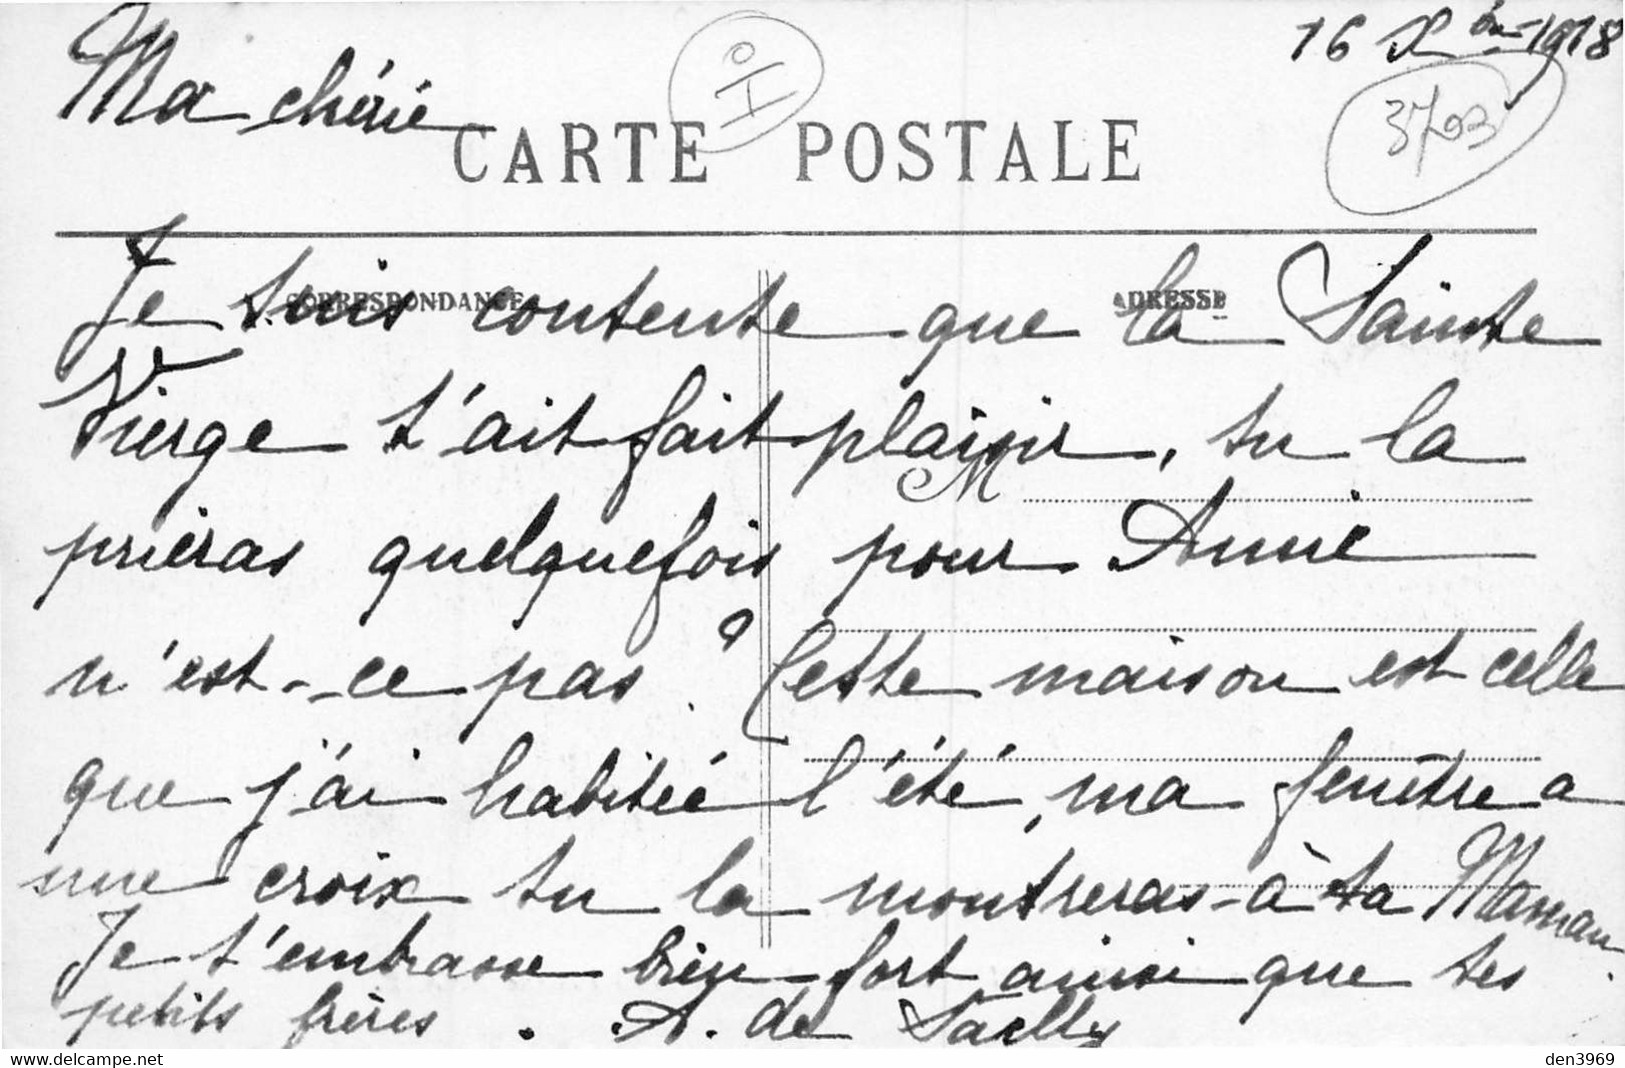 16 Xbre 1918
Ma chérie
10
3703
CARTE POSTALE
CORRESPONDANCE
ADRESSE
Je suis contente que la Sainte
Vierge t'ait fait plaisir, tu la
M
prieras quelquefois pour Annie
n'est-ce pas ? Cette maison est celle
que j'ai habitée l'été, ma fenêtre a
une croix tu la montreras à ta Maman.
Je t'embrasse bien fort ainsi que tes
petits frères. A. de
den3969